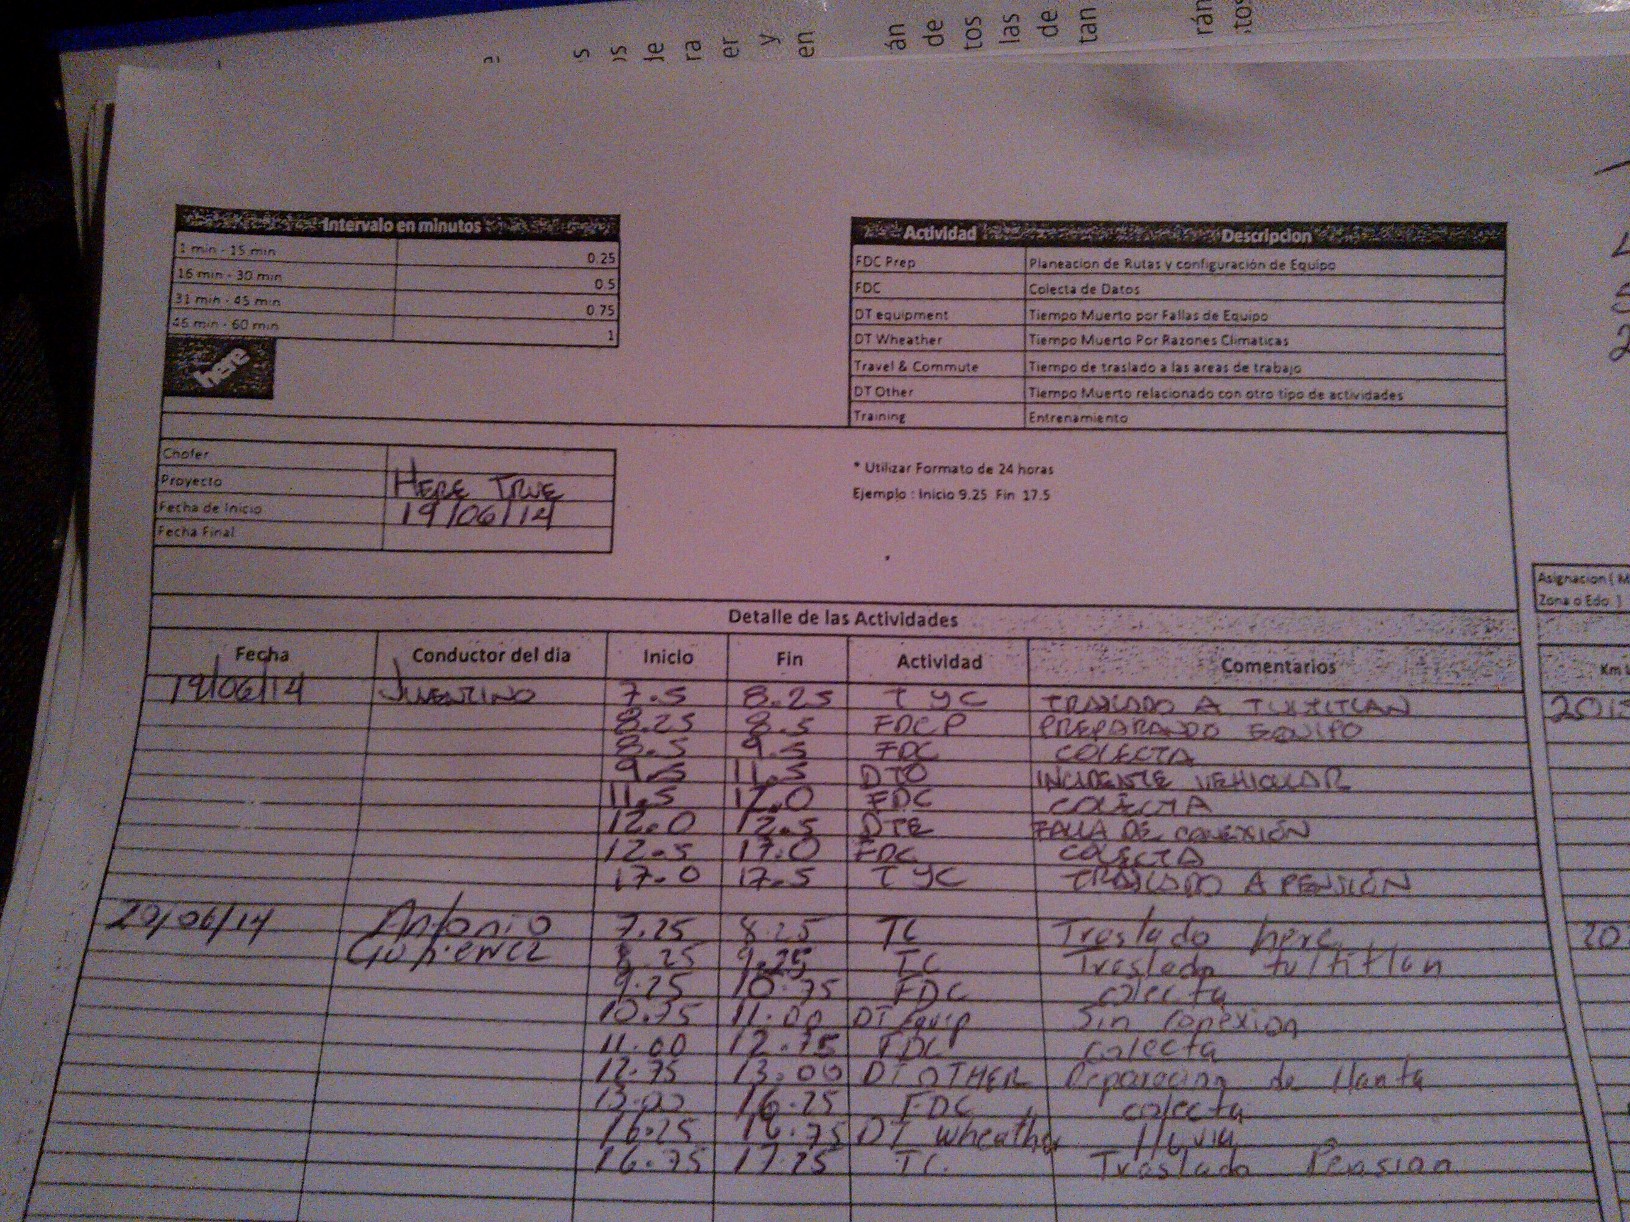 s
os
de
ra
er
y
en
án
de
tos
las
de
tan
rán
tos
Intervalo en minutos
1 min - 15 min 0.25
16 min - 30 min 0.5
31 min - 45 min 0.75
46 min - 60 min 1
here
Actividad Descripcion
FDC Prep Planeacion de Rutas y configuración de Equipo
FDC Colecta de Datos
DT equipment Tiempo Muerto por Fallas de Equipo
DT Wheather Tiempo Muerto Por Razones Climaticas
Travel & Commute Tiempo de traslado a las areas de trabajo
DT Other Tiempo Muerto relacionado con otro tipo de actividades
Training Entrenamiento
Chofer
Proyecto HERE TRUE
Fecha de Inicio 19/06/14
Fecha Final
* Utilizar Formato de 24 horas
Ejemplo : Inicio 9.25 Fin 17.5
Asignacion ( M
Zona o Edo. )
Detalle de las Actividades
Fecha Conductor del dia Inicio Fin Actividad Comentarios Km
19/06/14 JUVENTINO 7.5 8.25 T y C TRASLADO A TULTITLAN
8.25 8.5 FDC P PREPARANDO EQUIPO
8.5 9.5 FDC COLECTA
9.5 11.5 DTO INCIDENTE VEHICULAR
11.5 12.0 FDC COLECTA
12.0 12.5 DTE FALLA DE CONEXIÓN
12.5 17.0 FDC COLECTA
17.0 17.5 T y C TRASLADO A PENSIÓN
20/06/14 Antonio 7.25 8.25 TC Traslado here
Gutierrez 8.25 9.25 TC Traslado tultitlan
9.25 10.75 FDC colecta
10.75 11.00 DT Equip Sin conexion
11.00 12.75 FDC colecta
12.75 13.00 DT OTHER Reparacion de llanta
13.00 16.25 FDC colecta
16.25 16.75 DT Wheather lluvia
16.75 17.25 TC. Traslado Pension